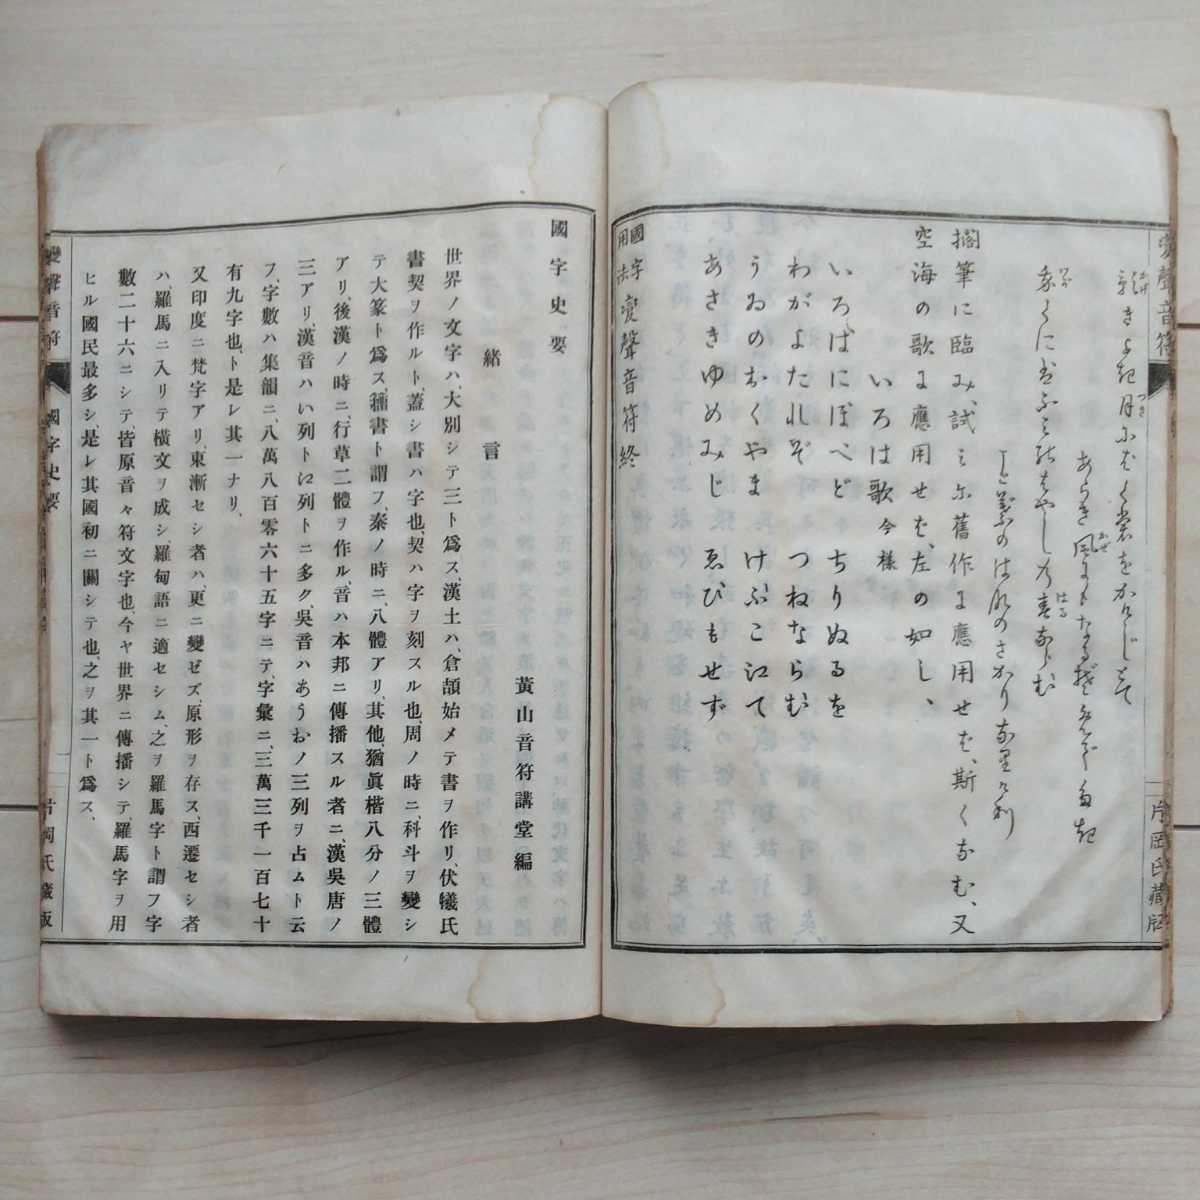 變聲音符
片岡氏藏版
擱筆に臨み、試ミニ舊作に應用せば、斯くなむ、又
空海の歌に應用せば、左の如し、
いろは歌 今樣
いろはにほへど ちりぬるを
わがよたれぞ つねならむ
うゐのおくやま けふこ江て
あさきゆめみじ ゑひもせず
國字用法變聲音符終
國字史要
緒言
黃山音符講堂編
世界ノ文字ハ、大別シテ三ト爲ス、漢土ハ、倉頡始メテ書ヲ作リ、伏犧氏
書契ヲ作ルト、蓋シ書ハ字也、契ハ字ヲ刻スル也、周ノ時ニ、科斗ヲ變シ
テ大篆ト爲ス、籒書ト謂フ、秦ノ時ニ、八體アリ、其他、猶眞楷八分ノ三體
アリ、後漢ノ時ニ、行草二體ヲ作ル、音ハ本邦ニ傳播スル者ニ、漢吳唐ノ
三アリ、漢音ハい列トに列トニ多ク、吳音ハあうおノ三列ヲ占ムト云
フ、字數ハ集韻ニ、八萬八百零六十五字ニテ、字彙ニ、三萬三千一百七十
有九字也、ト是レ其一ナリ、
又印度ニ梵字アリ、東漸セシ者ハ、更ニ變ゼズ、原形ヲ存ス、西遷セシ者
ハ、羅馬ニ入リテ橫文ヲ成シ、羅甸語ニ適セシム、之ヲ羅馬字ト謂フ字
數二十六ニシテ、皆原音々符文字也、今ヤ世界ニ傳播シテ、羅馬字ヲ用
ヒル國民最多シ、是レ其國初ニ關シテ也、之ヲ其一ト爲ス、
變聲音符 國字史要 一 片岡氏藏版